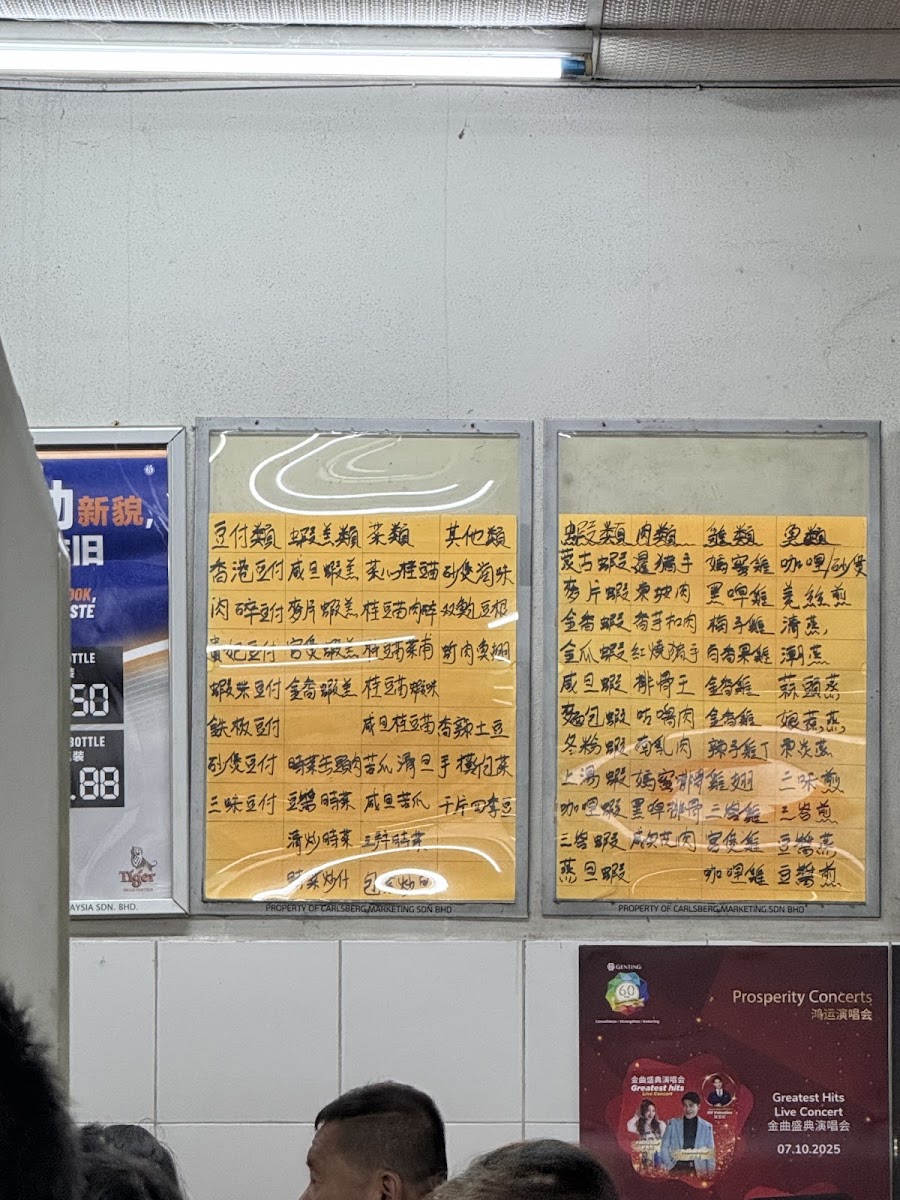 新貌,
旧
OOK,
STE
OTTLE
50
BOTTLE
裝
.88
Tiger
AYSIA SDN. BHD.
豆付類 蝦羔類 菜類 其他類
香港豆付 咸旦蝦羔 菜心桂豆苗 砂煲滷味
肉碎豆付 麥片蝦羔 桂豆苗肉碎 双鮑豆根
貴妃豆付 宮煲蝦羔 桂豆苗菜甫 虾肉魚翅
蝦米豆付 金香蝦羔 桂豆苗蝦米
鉄板豆付 咸旦桂豆苗 香辣土豆
砂煲豆付 苦瓜滑旦
三味豆付 豆醬時菜 咸旦苦瓜 干片四季豆
清炒時菜 三拌時菜
時菜炒什
PROPERTY OF CARLSBERG MARKETING SDN BHD
蝦類 肉類 雞類 魚類
蒙古蝦 暹豬手 媽蜜雞 咖哩/砂煲
麥片蝦 東坡肉 黑啤雞 姜絲煎
金香蝦 香芋扣肉 梅子雞 清蒸
金瓜蝦 红燒豬手 百香果雞 潮蒸
咸旦蝦 排骨王 金香雞 蒜頭蒸
麵包蝦 咕嚕肉 金香雞 娘惹蒸
冬粉蝦 南乳肉 辣子雞丁
上湯蝦 媽蜜排骨 雞翅 二味煎
咖哩蝦 黑啤排骨 三岩雞 三岩煎
三岩蝦 咸炊花肉 宮煲雞 豆醬蒸
蒸旦蝦 咖哩雞 豆醬煎
PROPERTY OF CARLSBERG MARKETING SDN BHD
GENTING
60
Prosperity Concerts
鸿运演唱会
金曲盛典演唱会
Greatest hits
Live Concert
Greatest Hits
Live Concert
金曲盛典演唱会
07.10.2025